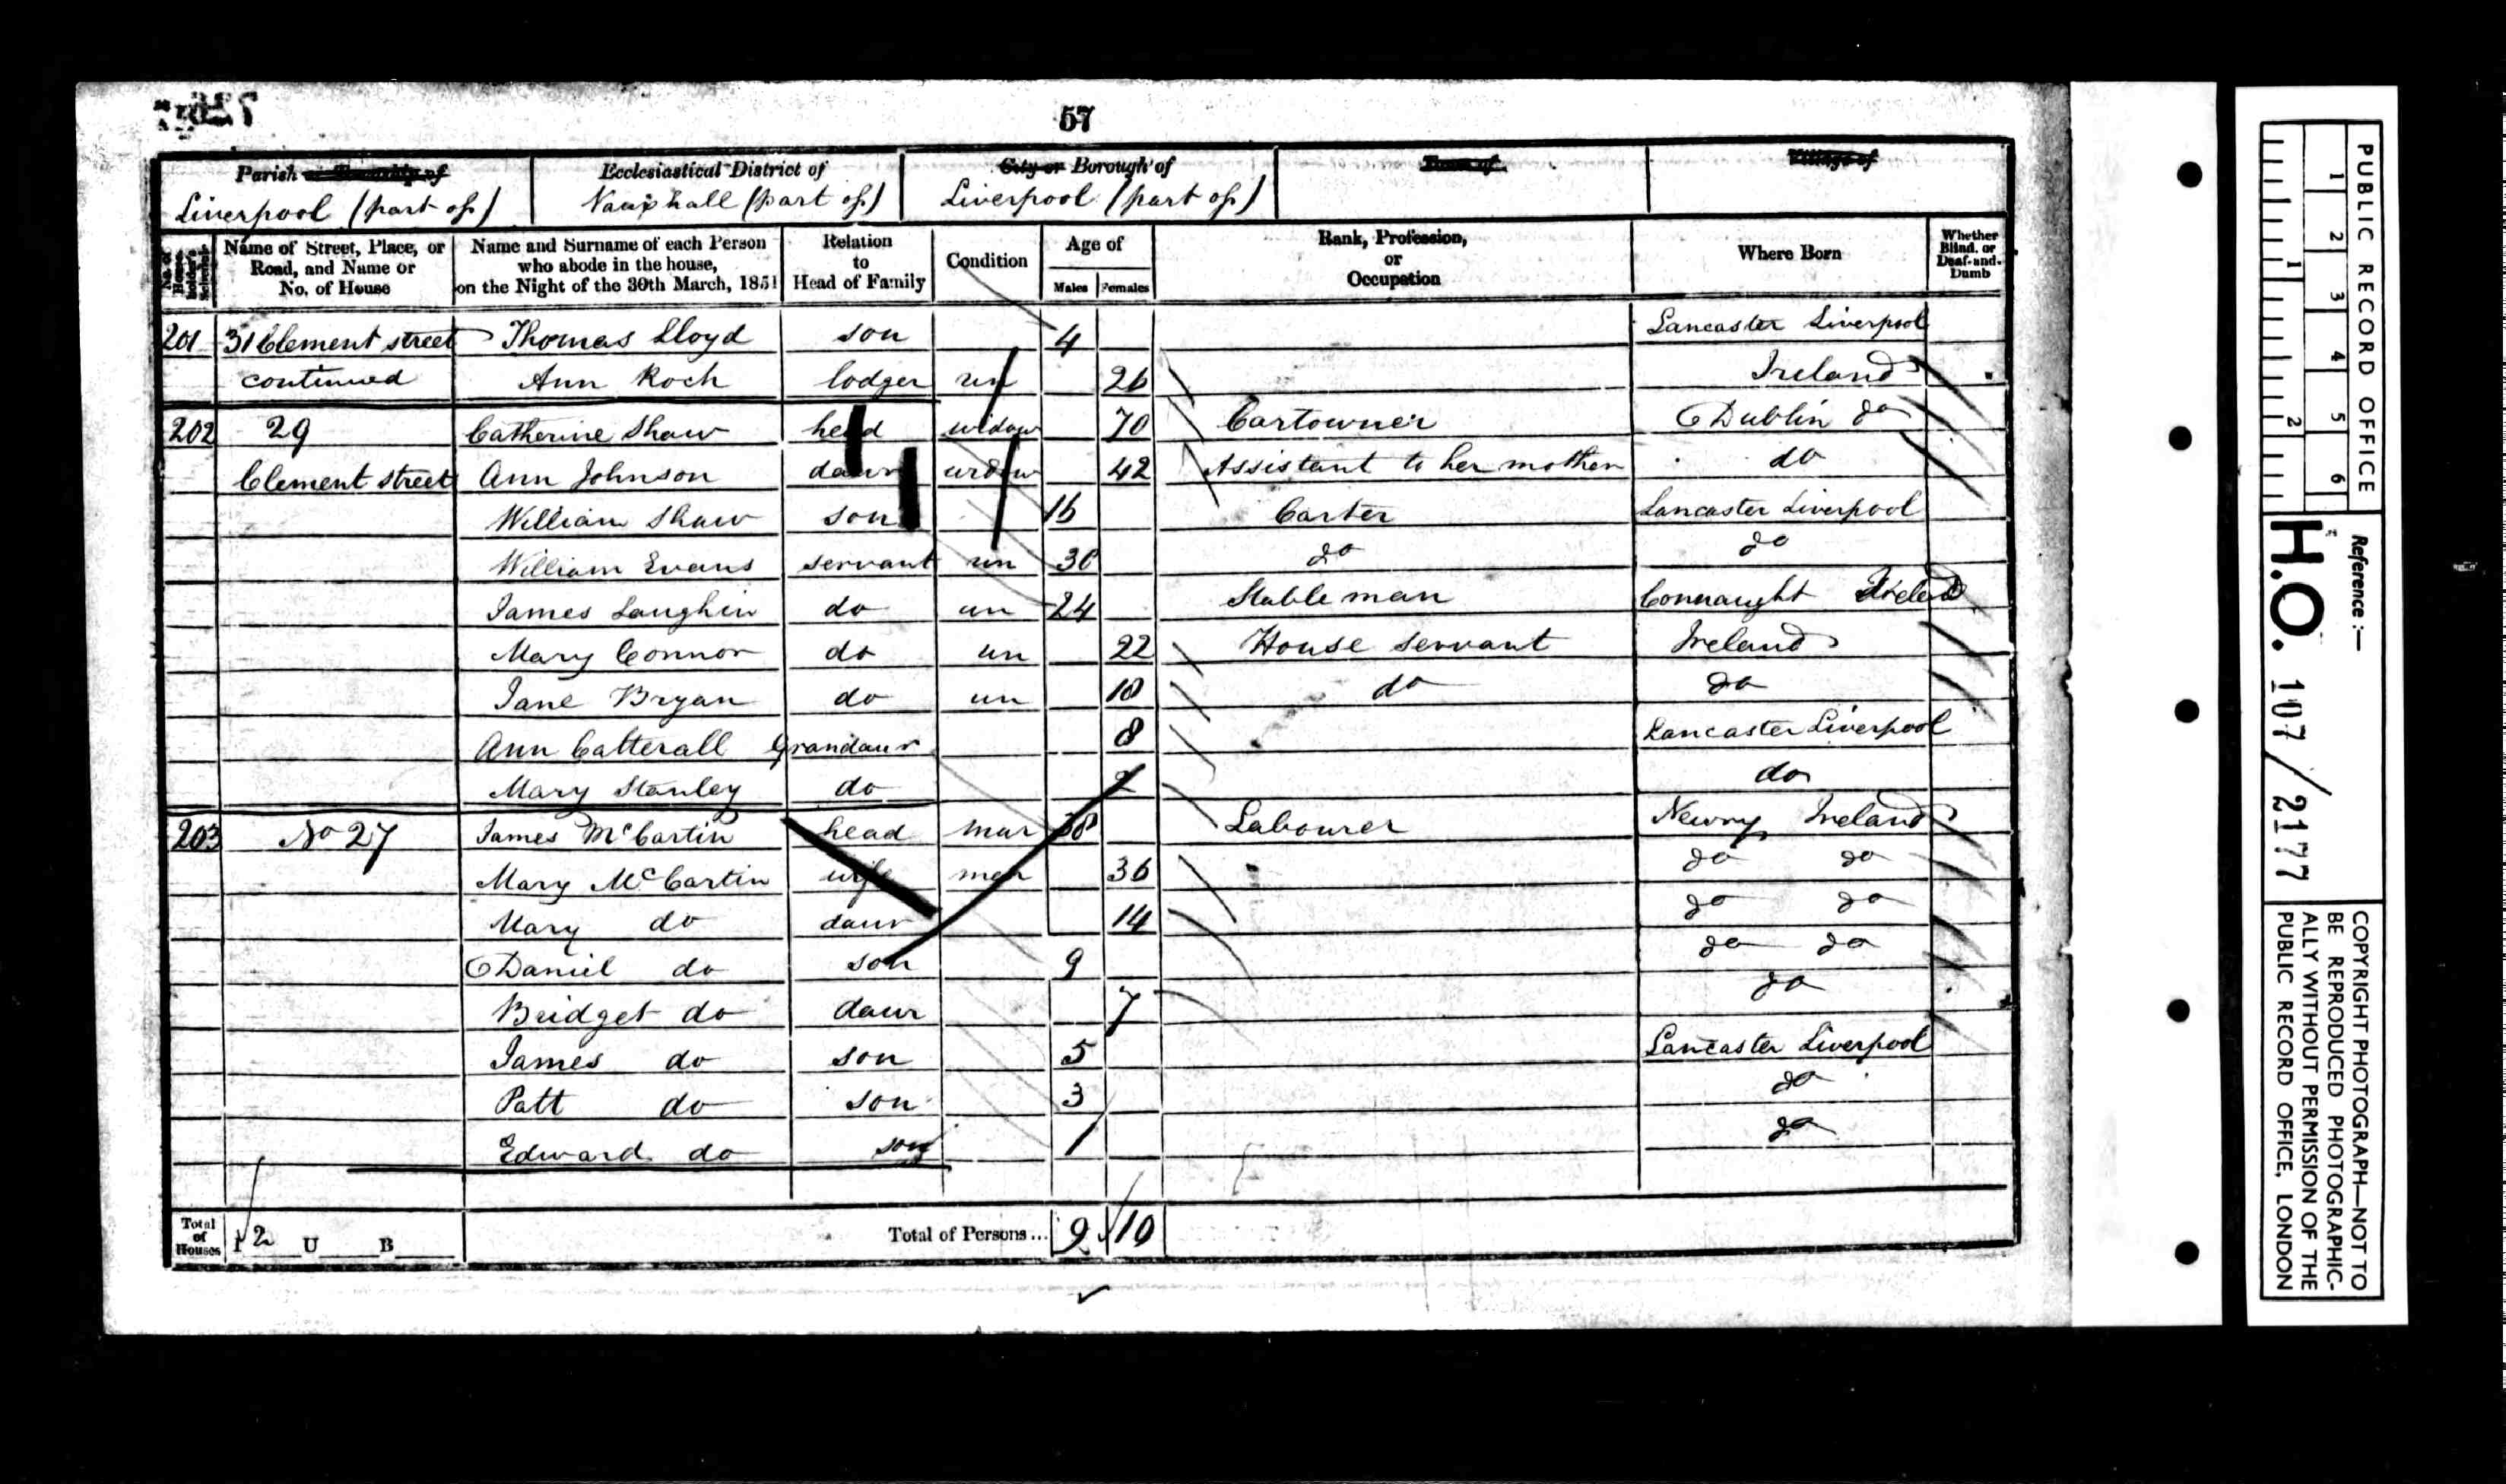 57
Parish or Township of
Liverpool (part of)
Ecclesiastical District of
Vauxhall (part of)
City or Borough of
Liverpool (part of)
Town of
Village of
No. of House-holder's Schedule
Name of Street, Place, or Road, and Name or No. of House
Name and Surname of each Person who abode in the house, on the Night of the 30th March, 1851
Relation to Head of Family
Condition
Age of
Males Females
Rank, Profession, or Occupation
Where Born
Whether Blind, or Deaf-and-Dumb
201 31 Clement street Thomas Lloyd son 4 Lancaster Liverpool
continued Ann Roch lodger un 26 Ireland
202 29 Catherine Shaw head widow 70 Cartowner Dublin do
Clement street Ann Johnson daur widow 42 Assistant to her mother do
William Shaw son 16 Carter Lancaster Liverpool
William Evans servant un 30 do do
James Laughin do un 24 Stable man Connaught Ireland
Mary Connor do un 22 House servant Ireland
Jane Bryan do un 18 do do
Ann Catterall Grandaur 8 Lancaster Liverpool
Mary Stanley do 2 do
203 No 27 James McCartin head mar 38 Labourer Newry Ireland
Mary McCartin wife mar 36 do do
Mary do daur 14 do do
Daniel do son 9 do do
Bridget do daur 7 do
James do son 5 Lancaster Liverpool
Patt do son 3 do
Edward do son 1 do
Total of Houses I 2 U B Total of Persons... 9 10
PUBLIC RECORD OFFICE
1 2 3 4 5 6
1 2
Reference :—
H.O. 107/2177
COPYRIGHT PHOTOGRAPH—NOT TO
BE REPRODUCED PHOTOGRAPHIC-
ALLY WITHOUT PERMISSION OF THE
PUBLIC RECORD OFFICE, LONDON